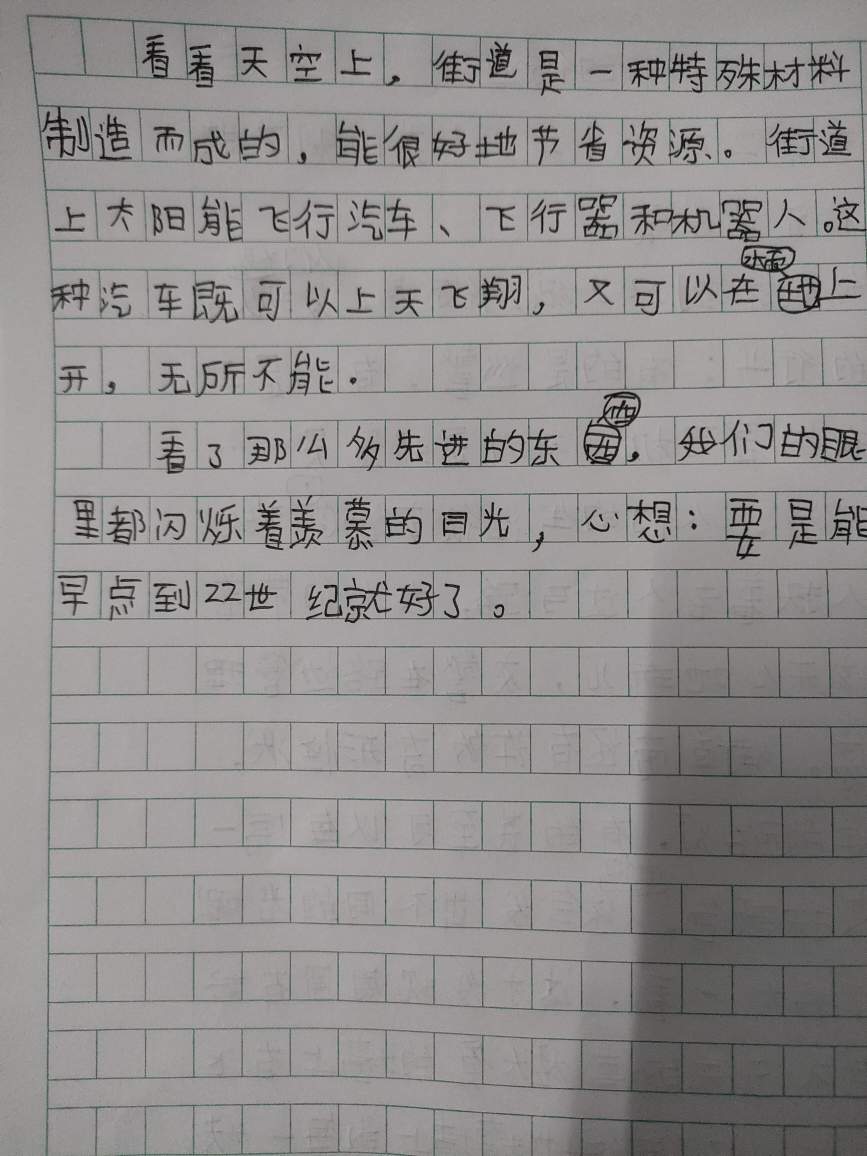 看看天空上，街道是一种特殊材料
制造而成的，能很好地节省资源。街道
上太阳能飞行汽车、飞行器和机器人。这
种汽车既可以上天飞翔，又可以在地上
开，无所不能.
看了那么多先进的东西，我们的眼
里都闪烁着羡慕的目光，心想：要是能
早点到22世纪就好了。